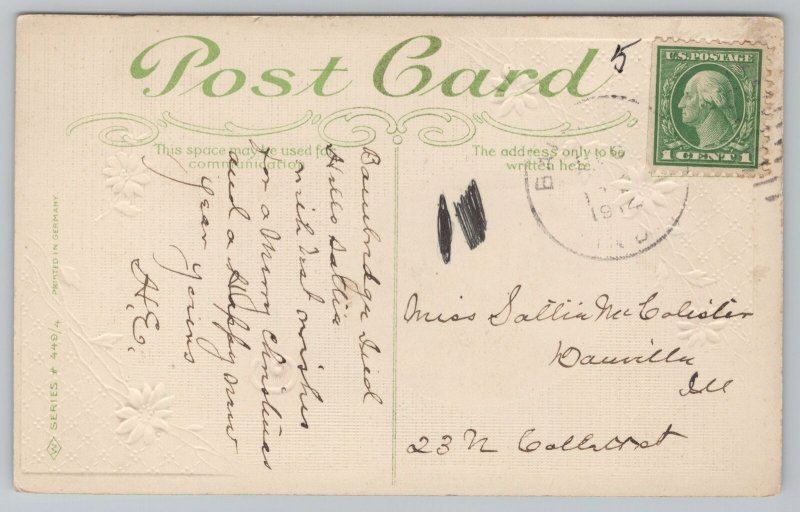 Post Card
5
U.S. POSTAGE
1 CENT 1
This space may be used for
communication.
The address only to be
written here.
IND
Bainbridge Ind
Hello Sallie
with best wishes
for a Merry Christmas
and a Happy new
year yours
H.E.
Miss Sallie McColister
Danville
Ill
23 N College st
PRINTED IN GERMANY
SERIES # 449/4